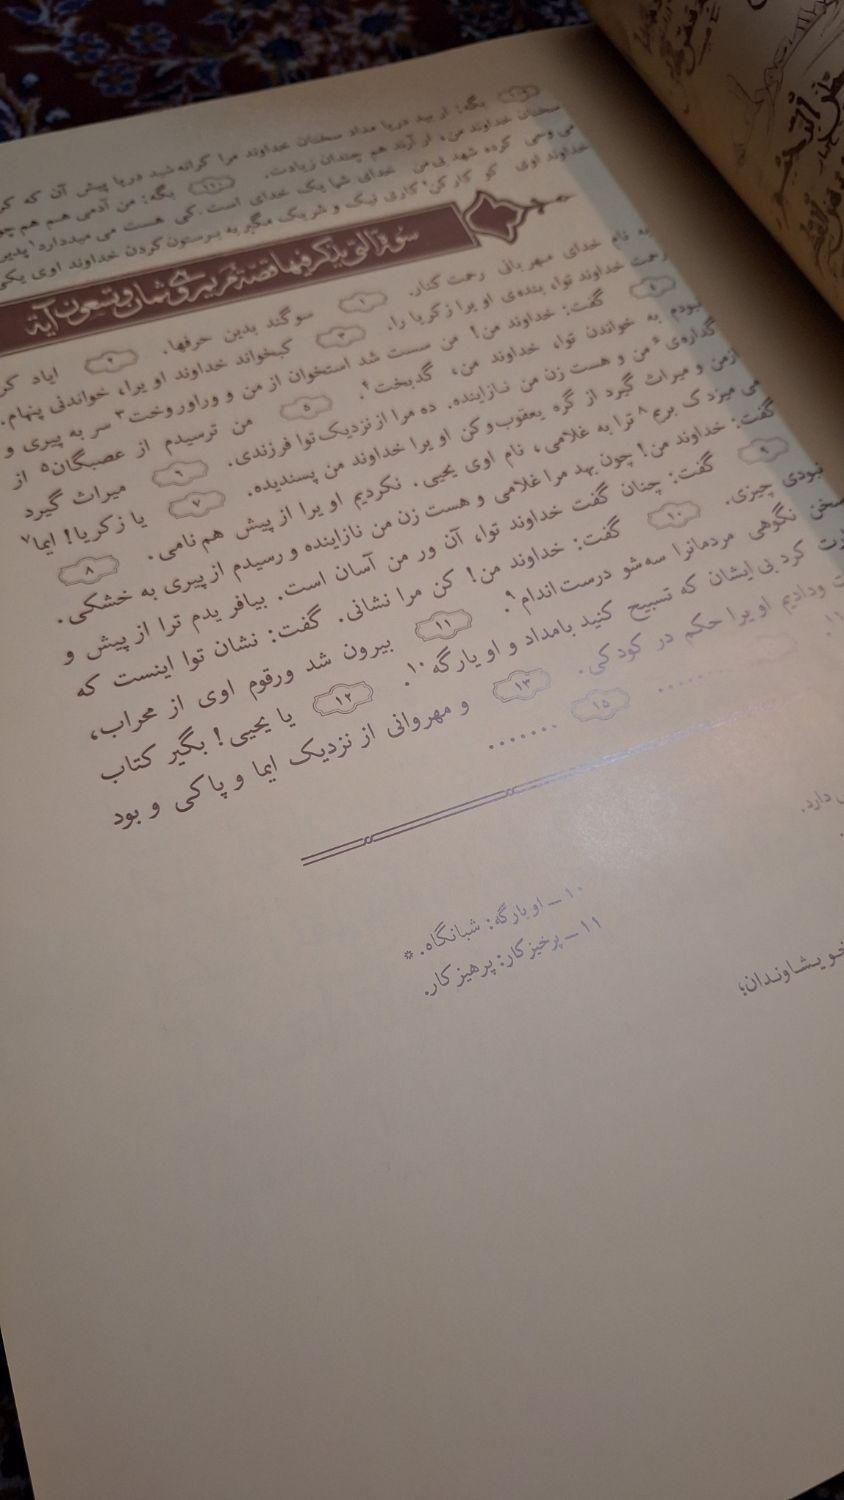 بگه: ار بید دریا مداد سخنان خداوند مرا کرانه شید دریا پیش آن که
سخنان خداوند من، ار آرند هم چندان زیادت. ۱۱۰ بگه: من آدمی هسم هم
می وحی کرده شهد بی من خدای شما یک خدای است. کی هست می میددارد
خداوند اوی کو کار کن کاری نیک و شریک مگیر به پرستون کردن خداوند اوی
سورة التی یذکر فیها قصة مریم و هی ثمانی و تسعون آیة
به نام خدای مهربانی رحمت کنار. ۱ سوگند بدین حرفها. ۲ ایاد
رحمت خداوند توا، بنده‌ی اویرا زکریا را. ۳ کبخواند خداوند اویرا، خواندنی پنهام.
۴ گفت: خداوند من! من سست شد استخوان از من و وراوروخت۳ سر به پیری و
نبودم به خواندن توا، خداوند من، گدبخت۴. ۵ من ترسیدم از عصبگان۵ از
گذاره‌ی۶ من و هست زن من نازاینده. ده مرا از نزدیک توا فرزندی. ۶ میراث گیرد
ازمن و میراث گیرد از گره یعقوب و کن اویرا خداوند من پسندیده. ۷ یا زکریا! ایما۷
می میزدک بریم۸ ترا به غلامی، نام اوی یحیی. نکردیم اویرا از پیش هم نامی. ۸
گفت: خداوند من! چون بهد مرا غلامی و هست زن من نازاینده و رسیدم از پیری به خشکی.
۹ گفت: چنان گفت خداوند توا، آن ور من آسان است. بیافریدم ترا از پیش و
نبودی چیزی. ۱۰ گفت: خداوند من! کن مرا نشانی. گفت: نشان توا اینست که
سخن نگوهی مردمانرا سه شو درست اندام۹. ۱۱ بیرون شد ورقوم اوی از محراب،
کرد بی ایشان که تسبیح کنید بامداد و اویارگه۱۰. ۱۲ یا یحیی! بگیر کتاب
ودادیم اویرا حکم در کودکی. ۱۳ و مهروانی از نزدیک ایما و پاکی و بود
۱۱. ........ ۱۵ .......
دارد.
۱۰ــ اوبارگه: شبانگاه.*
۱۱ــ پرخیزکار: پرهیزکار.
خویشاوندان؛